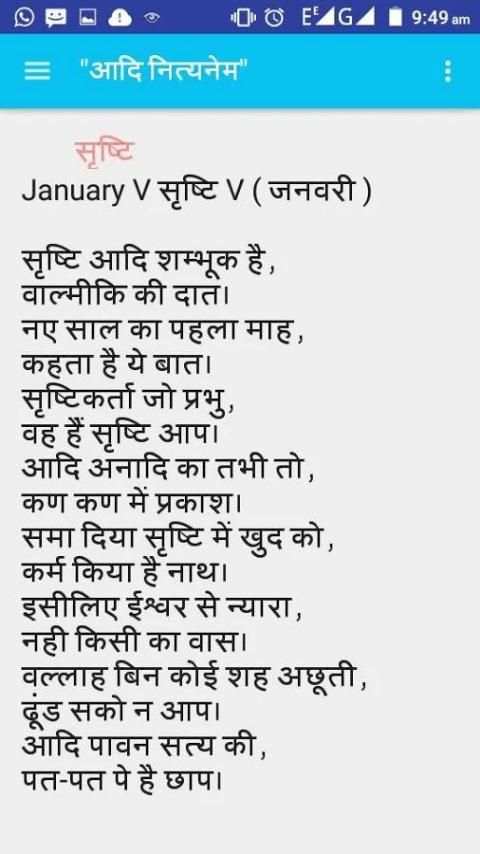 EE G 9:49 am
"आदि नित्यनेम"
सृष्टि
January V सृष्टि V ( जनवरी )
सृष्टि आदि शम्भूक है,
वाल्मीकि की दात।
नए साल का पहला माह,
कहता है ये बात।
सृष्टिकर्ता जो प्रभु,
वह हैं सृष्टि आप।
आदि अनादि का तभी तो,
कण कण में प्रकाश।
समा दिया सृष्टि में खुद को,
कर्म किया है नाथ।
इसीलिए ईश्वर से न्यारा,
नही किसी का वास।
वल्लाह बिन कोई शह अछूती,
ढूंड सको न आप।
आदि पावन सत्य की,
पत-पत पे है छाप।